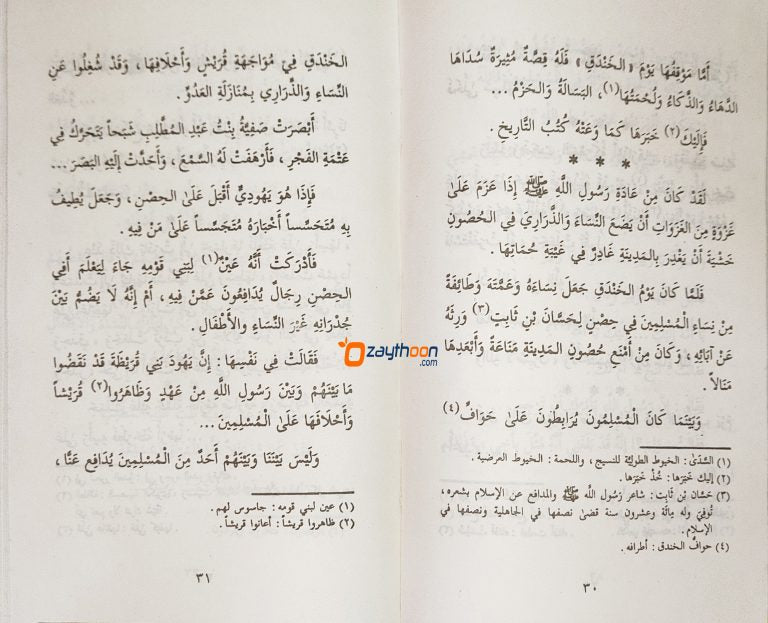 أَمَّا مَوْقِفُهَا يَوْمَ «الخَنْدَقِ» فَلَهُ قِصَّةٌ مُثِيرَةٌ سُدَاهَا
الدَّهَاءُ وَالذَّكَاءُ وَلُحْمَتُهَا(١)، البَسَالَةُ وَالحَزْمُ ...
فَإِلَيْكَ(٢) خَبَرَهَا كَمَا وَعَتْهُ كُتُبُ التَّارِيخِ .
* * *
لَقَدْ كَانَ مِنْ عَادَةِ رَسُولِ اللَّهِ ﷺ إِذَا عَزَمَ عَلَىٰ
غَزْوَةٍ مِنَ الغَزَوَاتِ أَنْ يَضَعَ النِّسَاءَ وَالذَّرَارِيَ فِي الحُصُونِ
خَشْيَةَ أَنْ يَغْدِرَ بِالمَدِينَةِ غَادِرٌ فِي غَيْبَةِ حُمَاتِهَا .
فَلَمَّا كَانَ يَوْمُ الخَنْدَقِ جَعَلَ نِسَاءَهُ وَعَمَّتَهُ وَطَائِفَةً
مِنْ نِسَاءِ المُسْلِمِينَ فِي حِصْنٍ لِحَسَّانَ بْنِ ثَابِتٍ(٣) وَرِثَهُ
عَنْ آبَائِهِ، وَكَانَ مِنْ أَمْنَعِ حُصُونِ المَدِينَةِ مَنَاعَةً وَأَبْعَدِهَا
مَنَالاً .
وَبَيْنَمَا كَانَ المُسْلِمُونَ يُرَابِطُونَ عَلَىٰ حَوَافِّ(٤)
(١) السَّدَىٰ : الخيوط الطوليَّة للنسيج ، واللحمة : الخيوط العرضية .
(٢) إليك خَبَرَها : خُذْ خبَرَها .
(٣) حَسَّان بْنِ ثَابِت : شاعر رَسُول اللَّه ﷺ والمدافع عن الإسلام بشعره،
تُوفِّيَ وله مِائَة وعشرون سنة قضىٰ نصفها في الجاهلية ونصفها في
الإسلام .
(٤) حوافُّ الخندق : أطرافه .
٣٠
الخَنْدَقِ فِي مُوَاجَهَةِ قُرَيْشٍ وَأَحْلَافِهَا ، وَقَدْ شُغِلُوا عَنِ
النِّسَاءِ وَالذَّرَارِي بِمُنَازَلَةِ العَدُوِّ .
أَبْصَرَتْ صَفِيَّةُ بِنْتُ عَبْدِ المُطَّلِبِ شَبَحاً يَتَحَرَّكُ فِي
عَتْمَةِ الفَجْرِ ، فَأَرْهَفَتْ لَهُ السَّمْعَ ، وَأَحَدَّتْ إِلَيْهِ البَصَرَ ...
فَإِذَا هُوَ يَهُودِيٌّ أَقْبَلَ عَلَىٰ الحِصْنِ ، وَجَعَلَ يُطِيفُ
بِهِ مُتَحَسِّساً أَخْبَارَهُ مُتَجَسِّساً عَلَىٰ مَنْ فِيهِ .
فَأَدْرَكَتْ أَنَّهُ عَيْنٌ(١) لِبَنِي قَوْمِهِ جَاءَ لِيَعْلَمَ أَفِي
الحِصْنِ رِجَالٌ يُدَافِعُونَ عَمَّنْ فِيهِ ، أَمْ إِنَّهُ لَا يَضُمُّ بَيْنَ
جُدْرَانِهِ غَيْرَ النِّسَاءِ وَالأَطْفَالِ .
فَقَالَتْ فِي نَفْسِهَا : إِنَّ يَهُودَ بَنِي قُرَيْظَةَ قَدْ نَقَضُوا
مَا بَيْنَهُمْ وَبَيْنَ رَسُولِ اللَّهِ مِنْ عَهْدٍ وَظَاهَرُوا(٢) قُرَيْشاً
وَأَحْلَافَهَا عَلَىٰ المُسْلِمِينَ ...
وَلَيْسَ بَيْنَنَا وَبَيْنَهُمْ أَحَدٌ مِنَ المُسْلِمِينَ يُدَافِعُ عَنَّا ،
(١) عين لبني قومه : جاسوس لهم .
(٢) ظاهروا قريشاً : أعانوا قريشاً .
٣١
Ozaythoon
.com